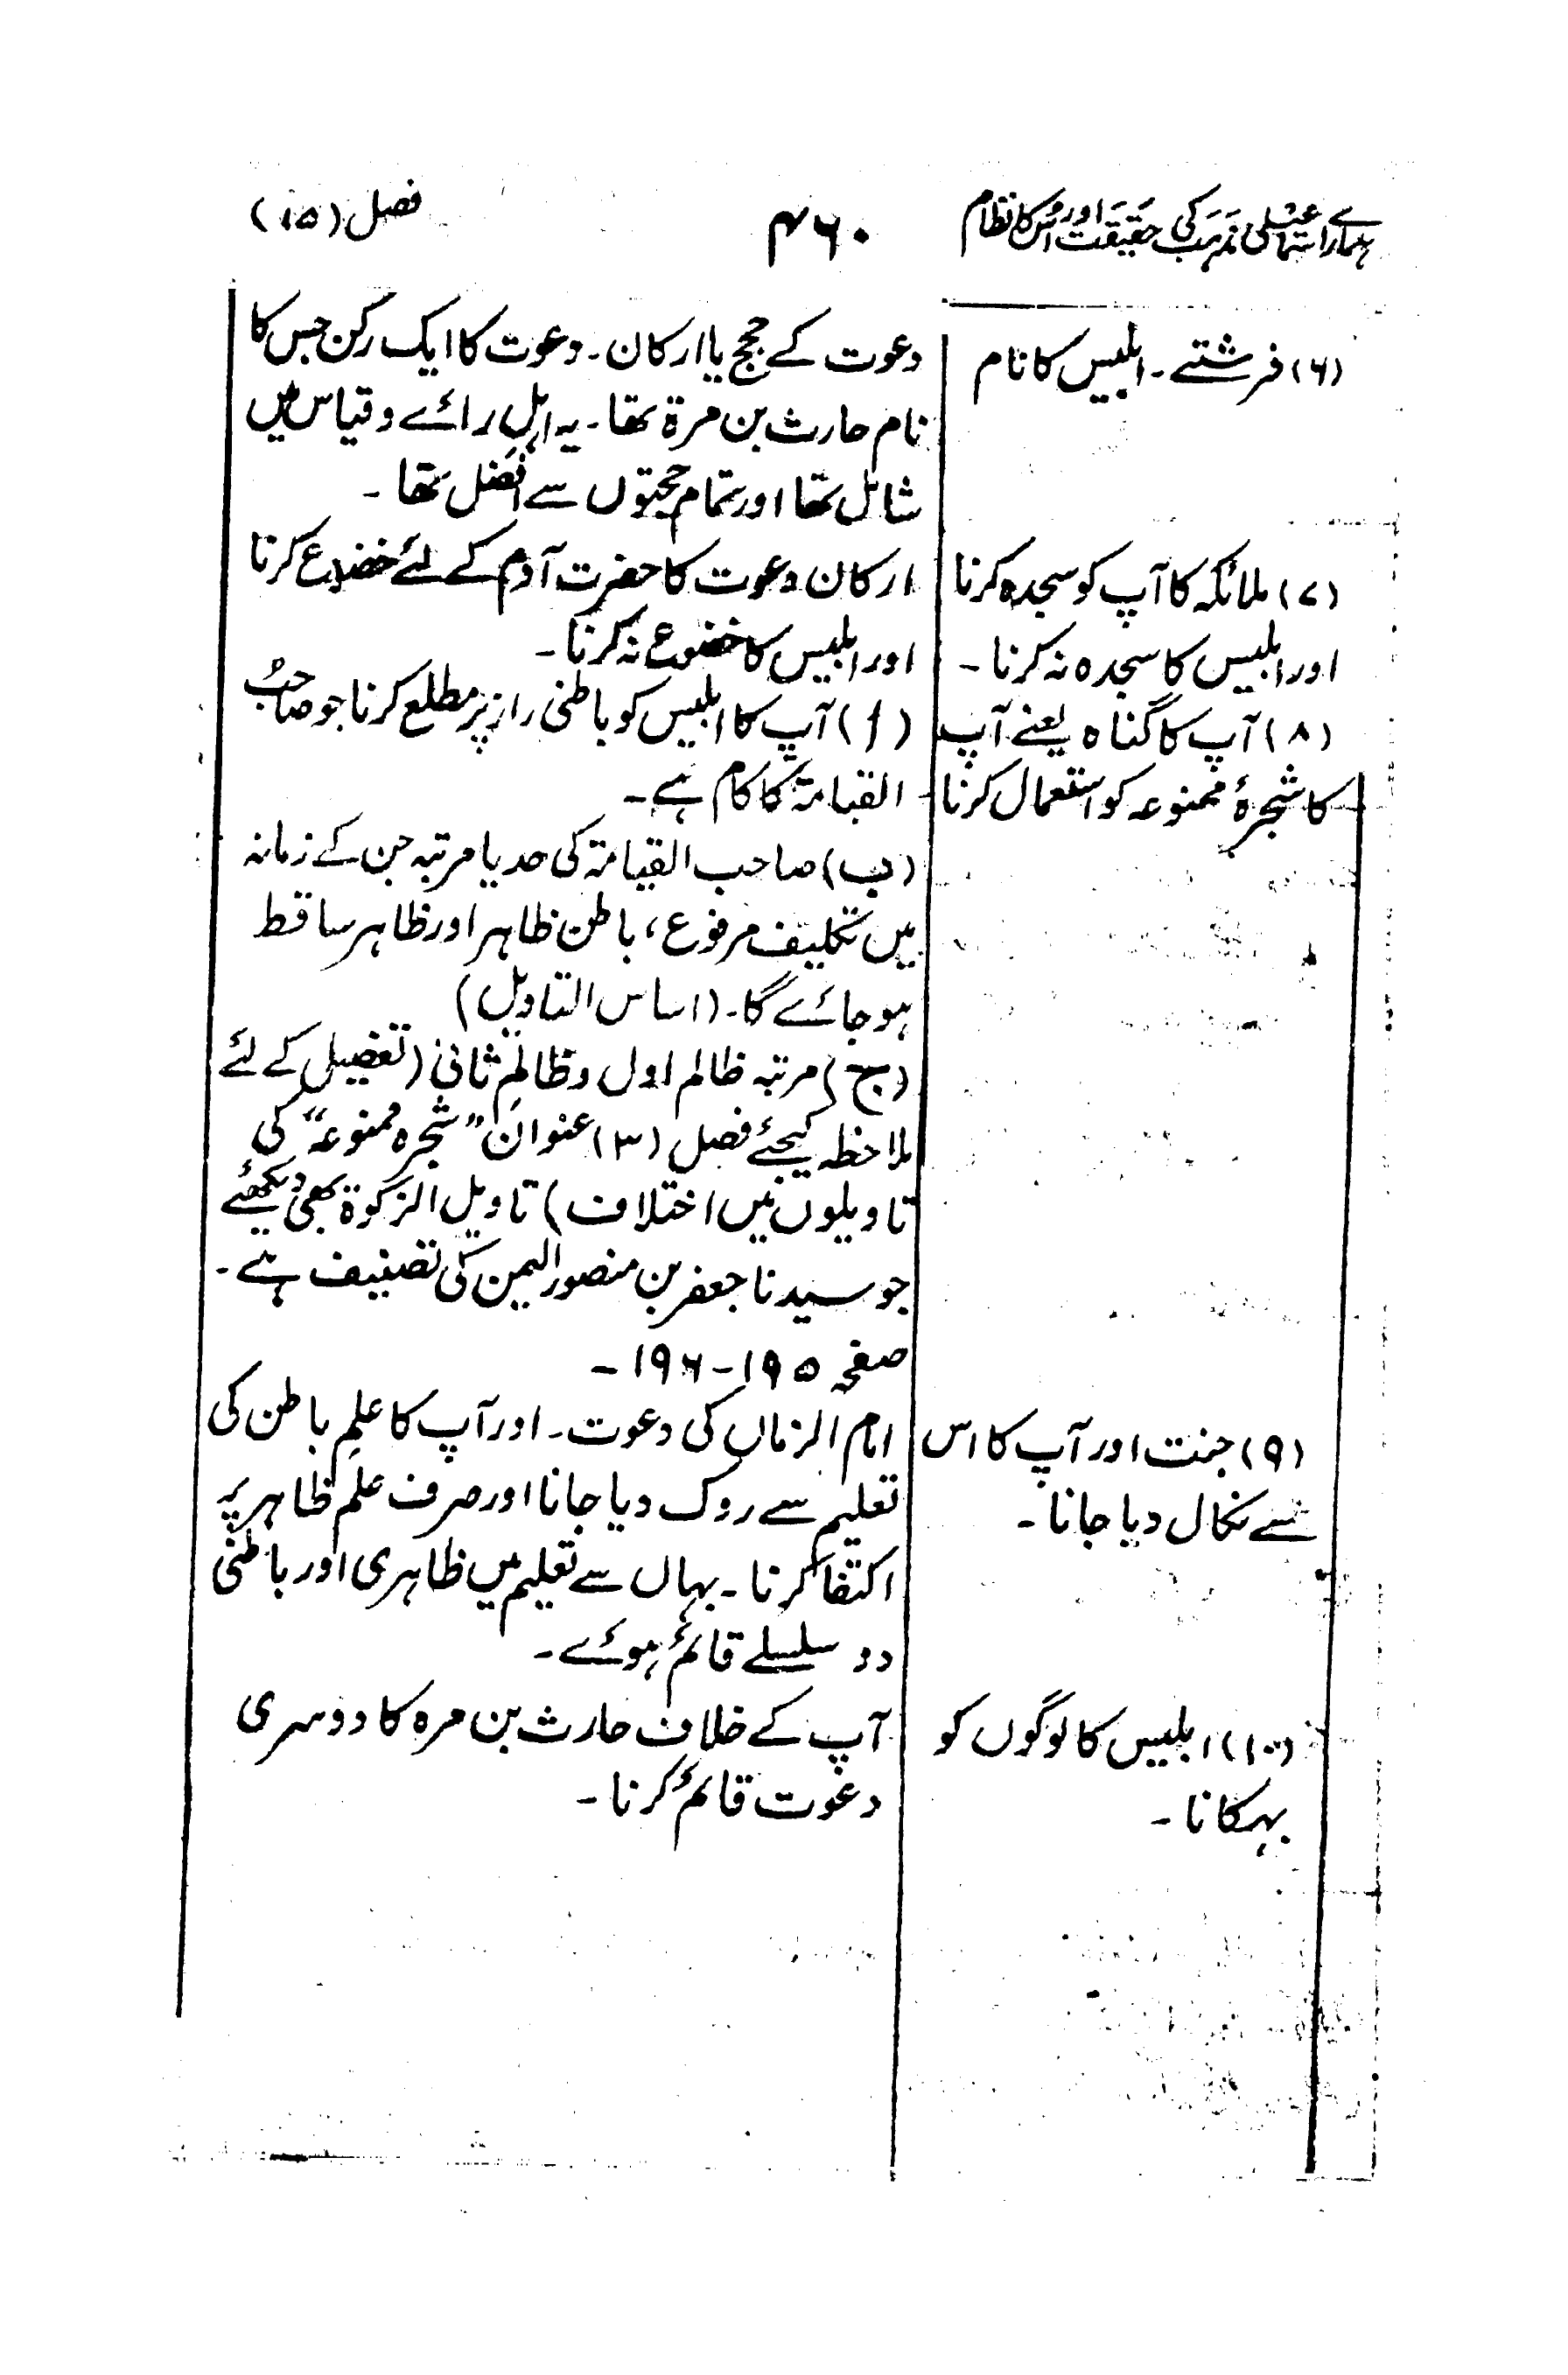 ہمارے اسماعیلی مذہب کی حقیقت اور اس کا نظام
۴۶۰
فصل (۱۵)
(۶) فرشتے۔ ابلیس کا نام
دعوت کے حجج یا ارکان۔ دعوت کا ایک رکن جس کا
نام حارث بن مرۃ تھا۔ یہ اہلِ رائے و قیاس میں
شامل تھا اور تمام حجتوں سے افضل تھا۔
(۷) ملائکہ کا آپ کو سجدہ کرنا
اور ابلیس کا سجدہ نہ کرنا۔
ارکان دعوت کا حضرت آدم کے لئے خضوع کرنا
اور ابلیس کا خضوع نہ کرنا۔
(۸) آپ کا گناہ یعنے آپ
کا شجرۂ ممنوعہ کو استعمال کرنا
(ا) آپ کا ابلیس کو باطنی راز پر مطلع کرنا جو صاحبُ
القیامۃ کا کام ہے۔
(ب) صاحب القیامۃ کی حد یا مرتبہ جن کے زمانہ
میں تکلیف مرفوع، باطن ظاہر اور ظاہر ساقط
ہو جائے گا۔ (اساس التاویل)
(ج) مرتبہ ظالم اول و ظالمِ ثانی (تفصیل کے لئے
ملاحظہ کیجئے فصل (۳) عنوان "شجرہ ممنوعہ" کی
تاویلوں میں اختلاف) تاویل الزکوۃ بھی دیکھئے
جو سیدنا جعفر بن منصور الیمن کی تصنیف ہے۔
صفحہ ۱۹۵-۱۹۶۔
(۹) جنت اور آپ کا اس
سے نکال دیا جانا۔
امام الزماں کی دعوت۔ اور آپ کا علمِ باطن کی
تعلیم سے روک دیا جانا اور صرف علم ظاہر پر
اکتفا کرنا۔ یہاں سے تعلیم میں ظاہری اور باطنی
دو سلسلے قائم ہوئے۔
(۱۰) ابلیس کا لوگوں کو
بہکانا۔
آپ کے خلاف حارث بن مرہ کا دوسری
دعوت قائم کرنا۔